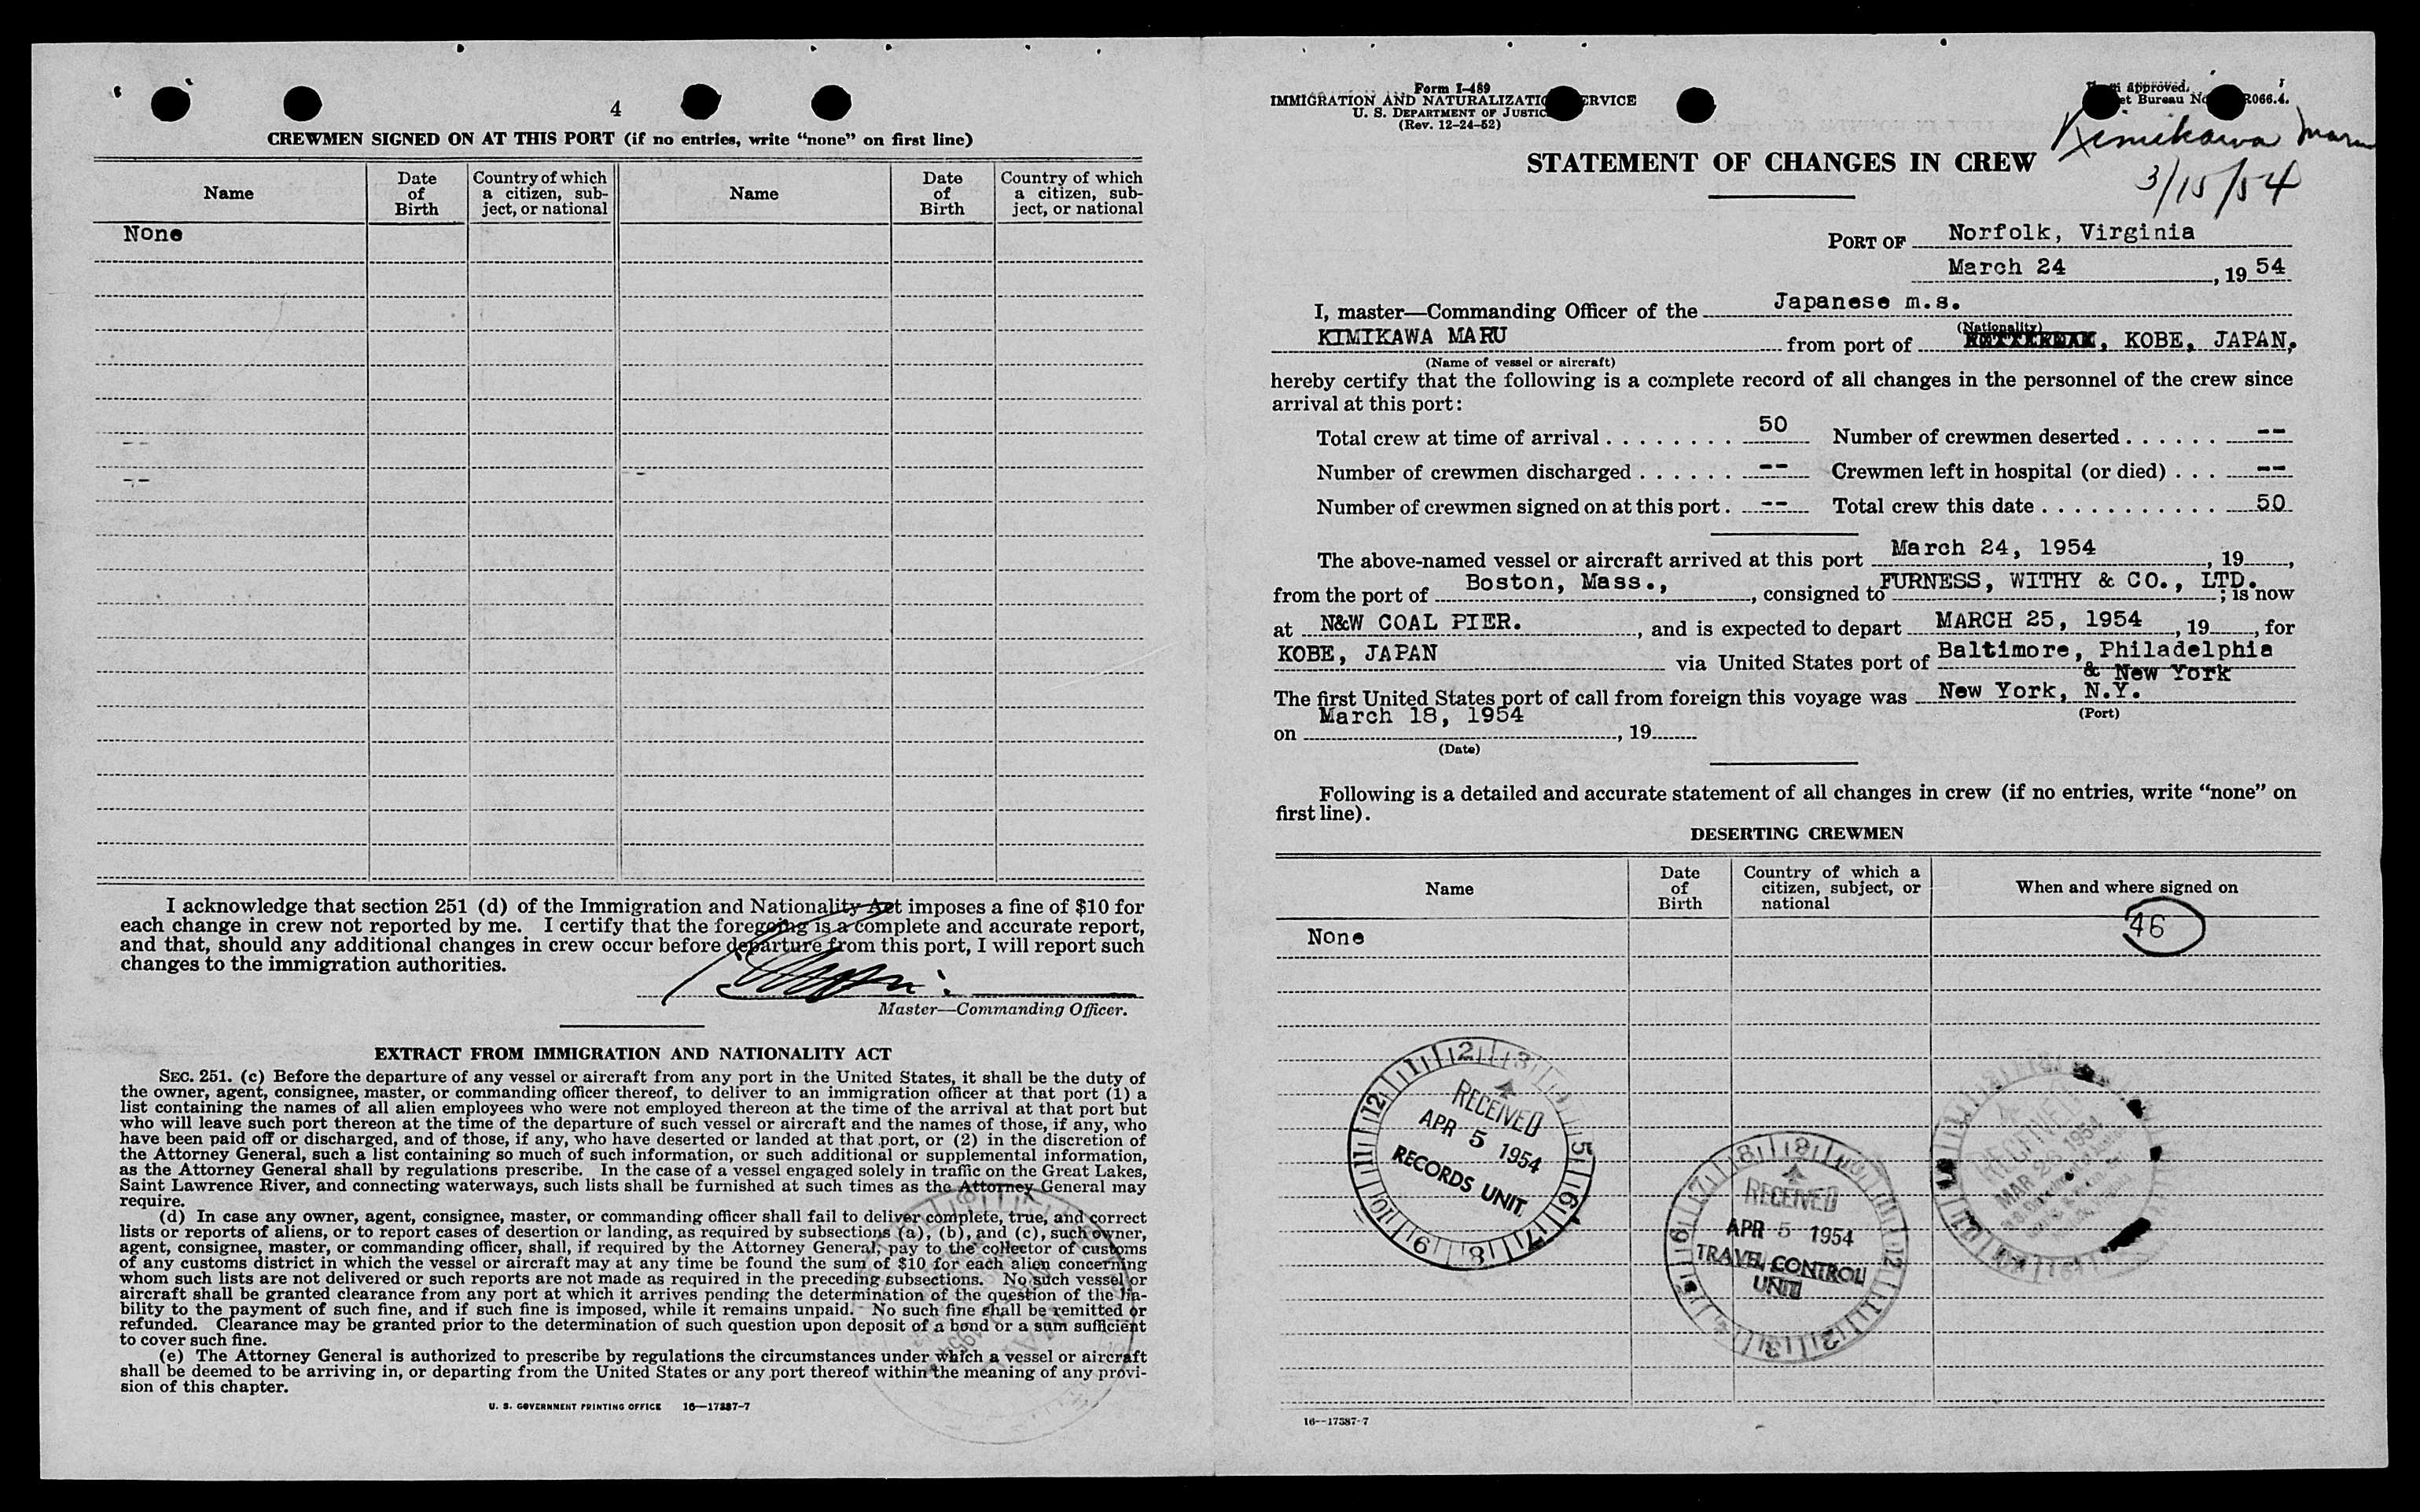 4
CREWMEN SIGNED ON AT THIS PORT (if no entries, write “none” on first line)
Name
Date of Birth
Country of which a citizen, sub-
ject, or national
Name
Date of Birth
Country of which a citizen, sub-
ject, or national
None
--
--
--
I acknowledge that section 251 (d) of the Immigration and Nationality Act imposes a fine of $10 for
each change in crew not reported by me. I certify that the foregoing is a complete and accurate report,
and that, should any additional changes in crew occur before departure from this port, I will report such
changes to the immigration authorities.
Master—Commanding Officer.
EXTRACT FROM IMMIGRATION AND NATIONALITY ACT
SEC. 251. (c) Before the departure of any vessel or aircraft from any port in the United States, it shall be the duty of
the owner, agent, consignee, master, or commanding officer thereof, to deliver to an immigration officer at that port (1) a
list containing the names of all alien employees who were not employed thereon at the time of the arrival at that port but
who will leave such port thereon at the time of the departure of such vessel or aircraft and the names of those, if any, who
have been paid off or discharged, and of those, if any, who have deserted or landed at that port, or (2) in the discretion of
the Attorney General, such a list containing so much of such information, or such additional or supplemental information,
as the Attorney General shall by regulations prescribe. In the case of a vessel engaged solely in traffic on the Great Lakes,
Saint Lawrence River, and connecting waterways, such lists shall be furnished at such times as the Attorney General may
require.
(d) In case any owner, agent, consignee, master, or commanding officer shall fail to deliver complete, true, and correct
lists or reports of aliens, or to report cases of desertion or landing, as required by subsections (a), (b), and (c), such owner,
agent, consignee, master, or commanding officer, shall, if required by the Attorney General, pay to the collector of customs
of any customs district in which the vessel or aircraft may at any time be found the sum of $10 for each alien concerning
whom such lists are not delivered or such reports are not made as required in the preceding subsections. No such vessel or
aircraft shall be granted clearance from any port at which it arrives pending the determination of the question of the lia-
bility to the payment of such fine, and if such fine is imposed, while it remains unpaid. No such fine shall be remitted or
refunded. Clearance may be granted prior to the determination of such question upon deposit of a bond or a sum sufficient
to cover such fine.
(e) The Attorney General is authorized to prescribe by regulations the circumstances under which a vessel or aircraft
shall be deemed to be arriving in, or departing from the United States or any port thereof within the meaning of any provi-
sion of this chapter.
U. S. GOVERNMENT PRINTING OFFICE 16—17387-7
Form I-489
IMMIGRATION AND NATURALIZATION SERVICE
U. S. DEPARTMENT OF JUSTICE
(Rev. 12-24-52)
approved.
Bureau No. R066.4.
Kimikawa Maru
3/15/54
STATEMENT OF CHANGES IN CREW
PORT OF Norfolk, Virginia
March 24, 1954
I, master—Commanding Officer of the Japanese m.s.
(Nationality)
KIMIKAWA MARU from port of , KOBE, JAPAN,
(Name of vessel or aircraft)
hereby certify that the following is a complete record of all changes in the personnel of the crew since
arrival at this port:
Total crew at time of arrival . . . . . . . . 50 Number of crewmen deserted . . . . . . --
Number of crewmen discharged . . . . . . -- Crewmen left in hospital (or died) . . . --
Number of crewmen signed on at this port . -- Total crew this date . . . . . . . . . . . 50
The above-named vessel or aircraft arrived at this port March 24, 1954, 19 ,
from the port of Boston, Mass., , consigned to FURNESS, WITHY & CO., LTD. ; is now
at N&W COAL PIER. , and is expected to depart MARCH 25, 1954 , 19 , for
KOBE, JAPAN via United States port of Baltimore, Philadelphia
& New York
The first United States port of call from foreign this voyage was New York, N.Y.
(Port)
on March 18, 1954 , 19
(Date)
Following is a detailed and accurate statement of all changes in crew (if no entries, write “none” on
first line).
DESERTING CREWMEN
Name
Date of Birth
Country of which a citizen, subject, or national
When and where signed on
None
46
RECEIVED
APR 5 1954
RECORDS UNIT.
RECEIVED
APR 5 1954
TRAVEL CONTROL
UNIT
RECEIVED
MAR 26 1954
16—17387-7